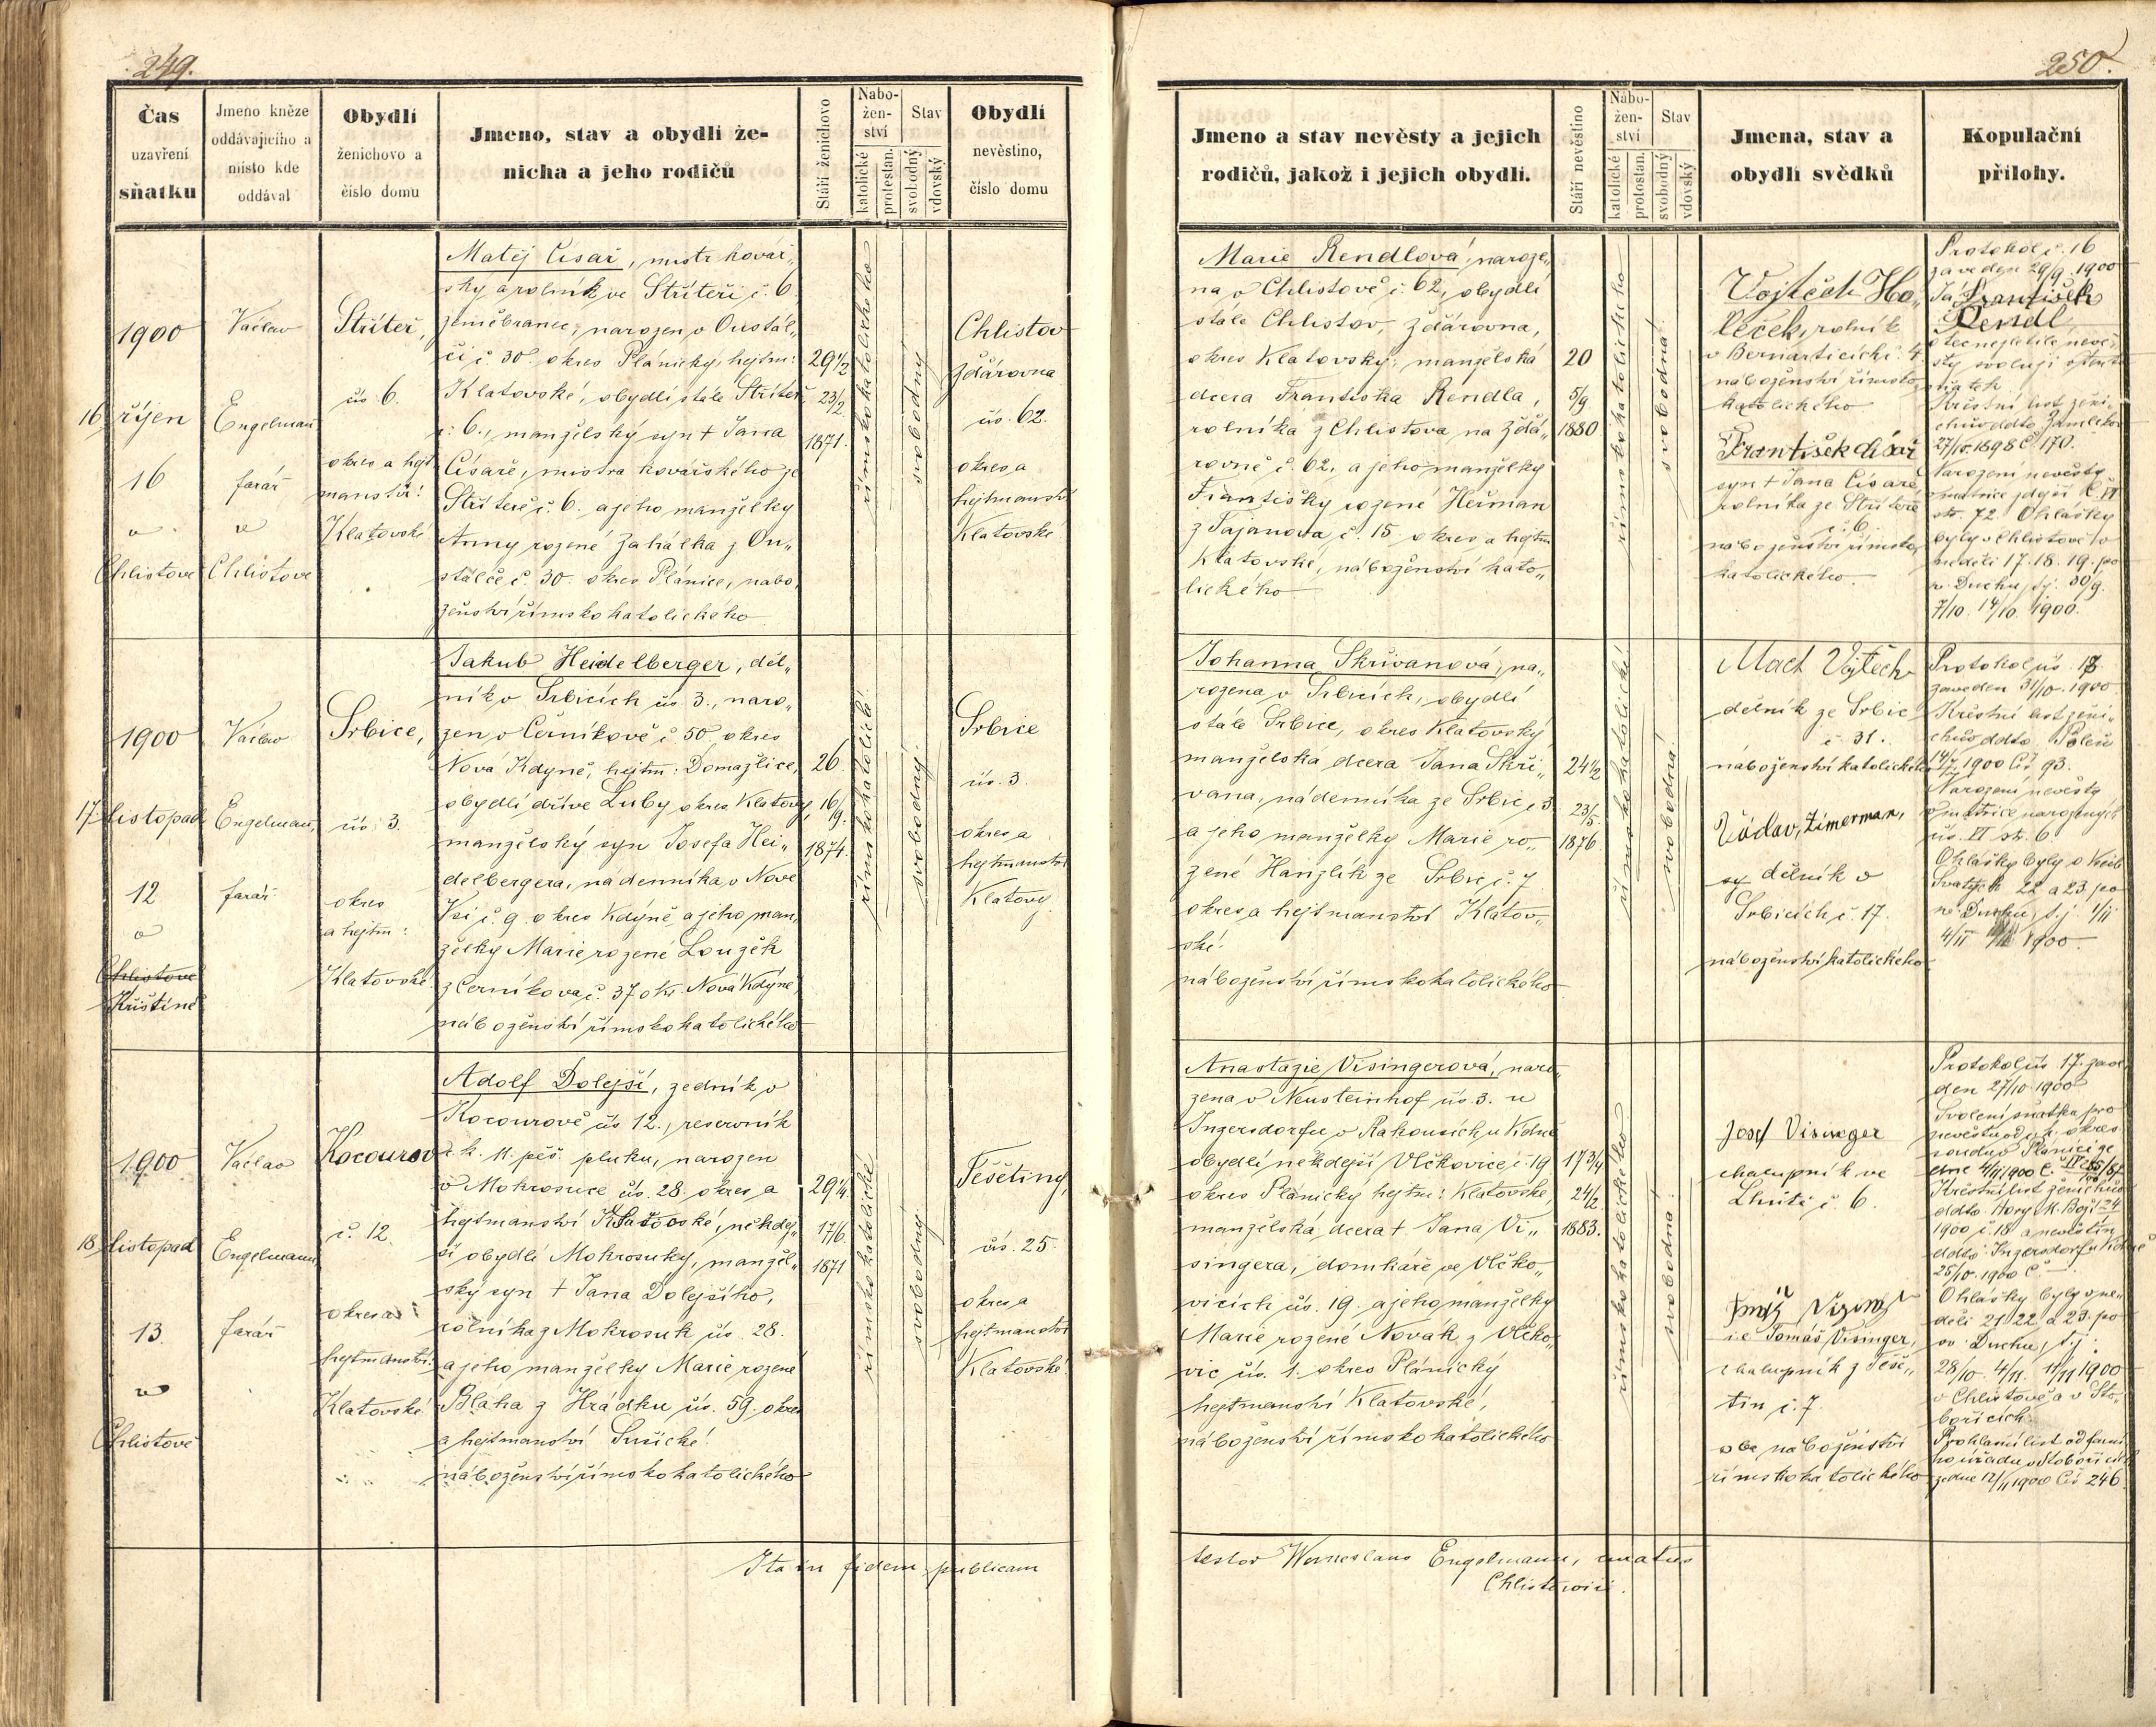 249.
Čas
uzavření
sňatku
Jmeno kněze
oddávajícího a
místo kde
oddával
Obydlí
ženichovo a
číslo domu
Jmeno, stav a obydlí že-
nicha a jeho rodičů
Stáří ženichovo
Nábo-
žen-
ství
katolické
protestan.
Stav
svobodný
vdovský
Obydlí
nevěstino,
číslo domu
16
1900
říjen
16
v
Chlistově
Václav
Engelmann
farář
v
Chlistově
Stříteř,
čís 6.
okres a hejt
manství:
Klatovské
Matěj Císař, mistr kovář„
ský a rolník ve Stříteři č. 6.
zeměbranec, narozen v Oustál„
či č. 30 okres Plánický, hejtm:
Klatovské, obydlí stále Stříteř
č. 6., manželský syn † Jana
Císaře, mistra kovářského ze
Stříteře č. 6. a jeho manželky
Anny rozené Zahálka z Ou„
stálče č. 30. okres Plánice, nábo„
ženství římskokatolického
29 1/2
23/2.
1871.
římskokatolického
svobodný
Chlistov
Žďárovna
čís. 62.
okres a
hejtmanství
Klatovské
17.
1900
listopad
12
v
Chlistově
Křištíně
Václav
Engelmann,
farář
Srbice,
čís. 3.
okres
a hejtm:
Klatovské.
Jakub Heidelberger, děl„
ník v Srbicích čís 3., naro„
zen v Černíkově č. 50. okres
Nová Kdyně, hejtm: Domažlice,
obydlí dříve Luby okres Klatovy,
manželský syn Josefa Hei„
delbergera, nádenníka v Nové
Vsi č. 9. okres Kdyně a jeho man„
želky Marie rozené Louzěk
z Černíkova č. 37 okr. Nová Kdyně,
náboženství římskokatolického
26.
16/9.
1874.
římskokatolické
svobodný.
Srbice
čís. 3.
okres a
hejtmanství
Klatovy.
18.
1900
listopad
13.
v
Chlistově
Václav
Engelmann,
farář
Kocourov
č. 12.
okres a
hejtmanství:
Klatovské
Adolf Dolejší, zedník v
Kocourově čís 12., reservník
c. k. 11. pěš. pluku, narozen
v Mokrosuce čís. 28. okres a
hejtmanství Klatovské, někdej„
ší obydlí Mokrosuky, manžel„
ský syn † Jana Dolejšího,
rolníka z Mokrosuk čís. 28.
a jeho manželky Marie rozené
Bláha z Hrádku čís. 59. okres
a hejtmanství Sušické.
náboženství římskokatolického
29 1/4.
17/6.
1871
římskokatolické
svobodný
Těšetiny,
čís. 25.
okres a
hejtmanství
Klatovské.
Ita in fidem publicam
250.
Jmeno a stav nevěsty a jejich
rodičů, jakož i jejich obydlí.
Stáří nevěstino
Nábo-
žen-
ství
katolické
protestan.
Stav
svobodný
vdovský
Jmena, stav a
obydlí svědků
Kopulační
přílohy.
Marie Rendlová, naroze„
na v Chlistově č. 62, obydlí
stále Chlistov, Žďárovna,
okres Klatovský, manželská
dcera Františka Rendla,
rolníka z Chlistova na Žďá„
rovně č. 62. a jeho manželky
Františky rozené Heřman
z Tajanova č. 15 okres a hejtm
Klatovské, náboženství kato„
lického
20
5/9
1880
římskokatolického
svobodná.
Vojtěch Ho„
leček, rolník
v Bernarticích č. 4.
náboženství římsko
katolického.
František císař
syn † Jana Císaře
rolníka ze Stříteře
č. 6.
náboženství římsko
katolického.
Protokol č. 16
zaveden 29/9. 1900
Já František
Rendl,
otec nezletilé nevě„
sty svoluji
Křestní list žení„
chův ddto
27/10. 1898 Č 170.
Narození nevěsty
str. 72. Ohlášky
byly v Chlistově v
neděli 17. 18. 19. po
sv. Duchu, t.j. 30/9.
7/10. 14/10. 1900.
Johanna Skřivanová, na„
rozena v Srbicích, obydlí
stále Srbice, okres Klatovský
manželská dcera Jana Skři„
vana, nádenníka ze Srbic č. 3
a jeho manželky Marie ro„
zené Hanzlík ze Srbic č. 7
okres a hejtmanství Klatov„
ské.
náboženství římskokatolického
24 1/2
23/5.
1876.
římskokatolické
svobodná.
Mach Vojtěch
dělník ze Srbic
č. 31.
náboženství katolického
Václav, Zimerman,
dělník v
Srbicích č. 17.
náboženství katolického
Protokol čís. 18.
zaveden 31/10. 1900
Křestní list žení„
chův ddto Poleň
1900 Čís. 93.
Narození nevěsty
v matrice narozených
čís. VI str. 6.
Ohlášky byly o Všech
Svatých 22 a 23. po
sv. Duchu, t.j. 1/11
4/11 1900.
Anastazie Visingerová, naro„
zena v Neusteinhof čís. 3. u
Ingersdorfu v Rakousích u Vídně
obydlí někdejší Vlčkovice č. 19
okres Plánický hejtm: Klatovské
manželská dcera † Jana Vi„
singera, domkáře ve Vlčko„
vicích čís. 19. a jeho manželky
Marie rozené Novák z Vlčko„
vic čís. 1. okres Plánický
hejtmanství Klatovské,
náboženství římskokatolického
17 3/4
24/2.
1883.
římskokatolického
svobodná.
Josef Visinger
chalupník ve
Lhůtě č. 6.
i.e Tomáš Visinger,
chalupník z Těše„
tin č. 7.
oba náboženství
římskokatolického
Protokol čís 17. zave
den 27/10. 1900.
Svolení sňatku pro
nevěstu od c. k. okres.
soudu v Plánici ze
dne 4/11 1900 č.
Křestní list ženichův
ddto Hory M. Boží
1900 č. 18 a nevěstin
ddto Ingersdorf u Vídně
25/10. 1900 Č.
Ohlášky byly v ne„
děli 21 22. a 23. po
sv. Duchu, t.j.
28/10. 4/11. 11/11 1900
v Chlistově a v Sto„
bořicích.
Prohlašní list od farní
ho úřadu v Stobořicích
ze dne 12/11 1900 Čís 246.
testor Wenceslaus Engelmann, curatus
Chlistovii.